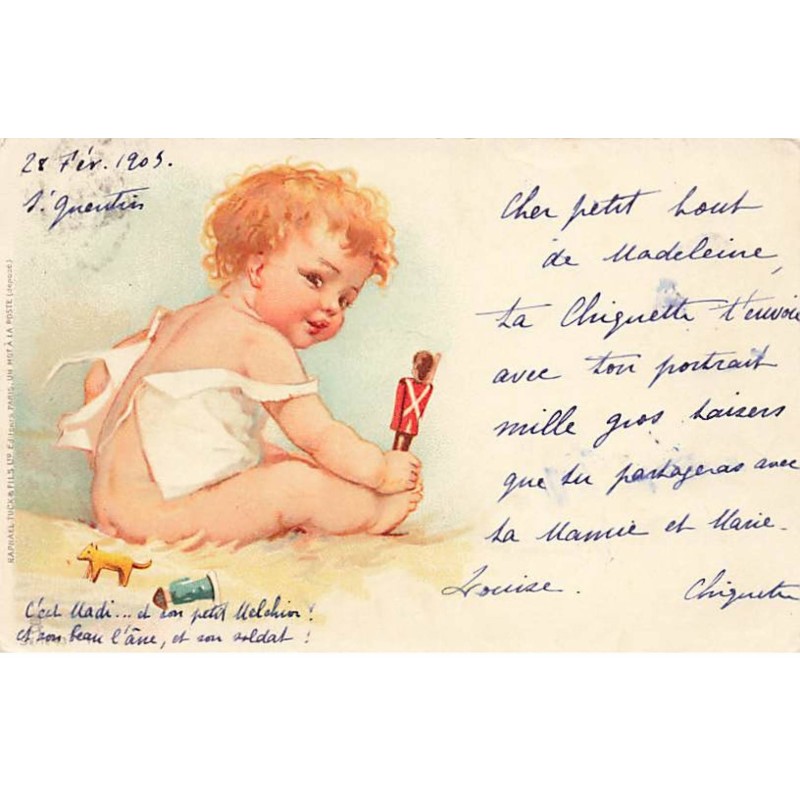 28 Fév. 1905.
St Quentin
Cher petit bout
de Madeleine,
ta Chiquette t'envoie
avec ton portrait
mille gros baisers
que tu partageras avec
ta Mamie et Marie-
Louise. Chiquette
C'est Madi... et son petit Melchior !
et son beau l'âne, et son soldat !
RAPHAEL TUCK & FILS, LTD Editeurs PARIS. UN MOT À LA POSTE (DÉPOSÉ)